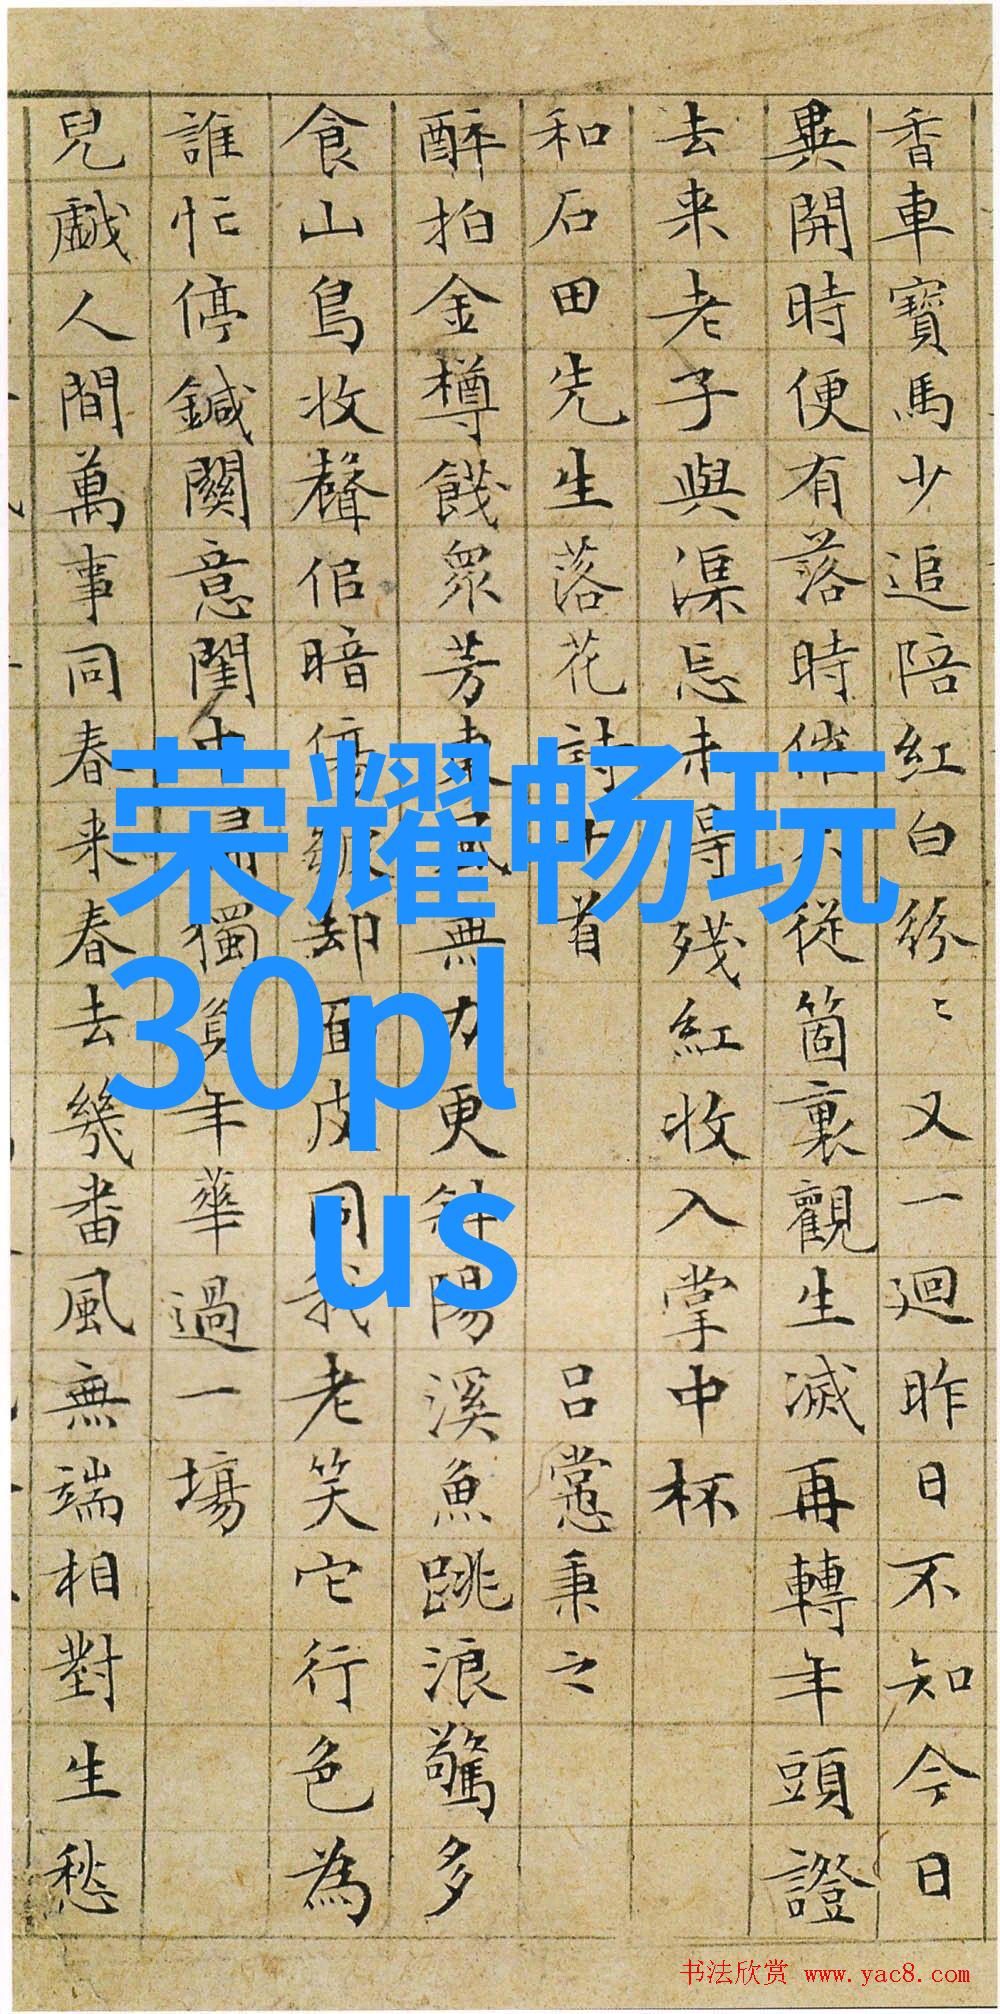 香車寶馬少追陪紅白紛〻又一迴昨日不知今日
異開時便有落時催從箇裏觀生滅再轉年頭證
去来老子與渠忘未得殘紅收入掌中杯
和石田先生落花詩十首 呂㦂秉之
醉拍金樽餞眾芳東風無力更斜陽溪魚跳浪驚多
食山鳥收聲倌暗傷却面皮同我老笑它行色為
誰忙停鍼關意閨中婦獨負年華過一場
兒戲人間萬事同春来春去幾番風無端相對生愁
荣耀畅玩
30pl
us
书法欣赏 www.yac8.com